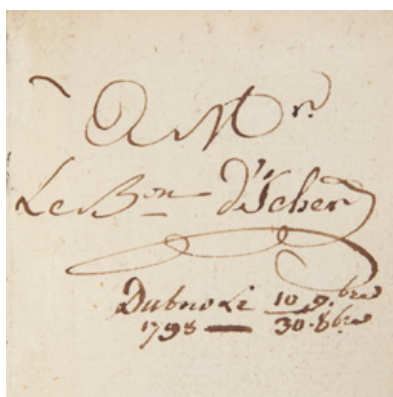 A Mr
Le Bon d'Icher
Dubno Le 10 9.bre
1798 — 30.8bre